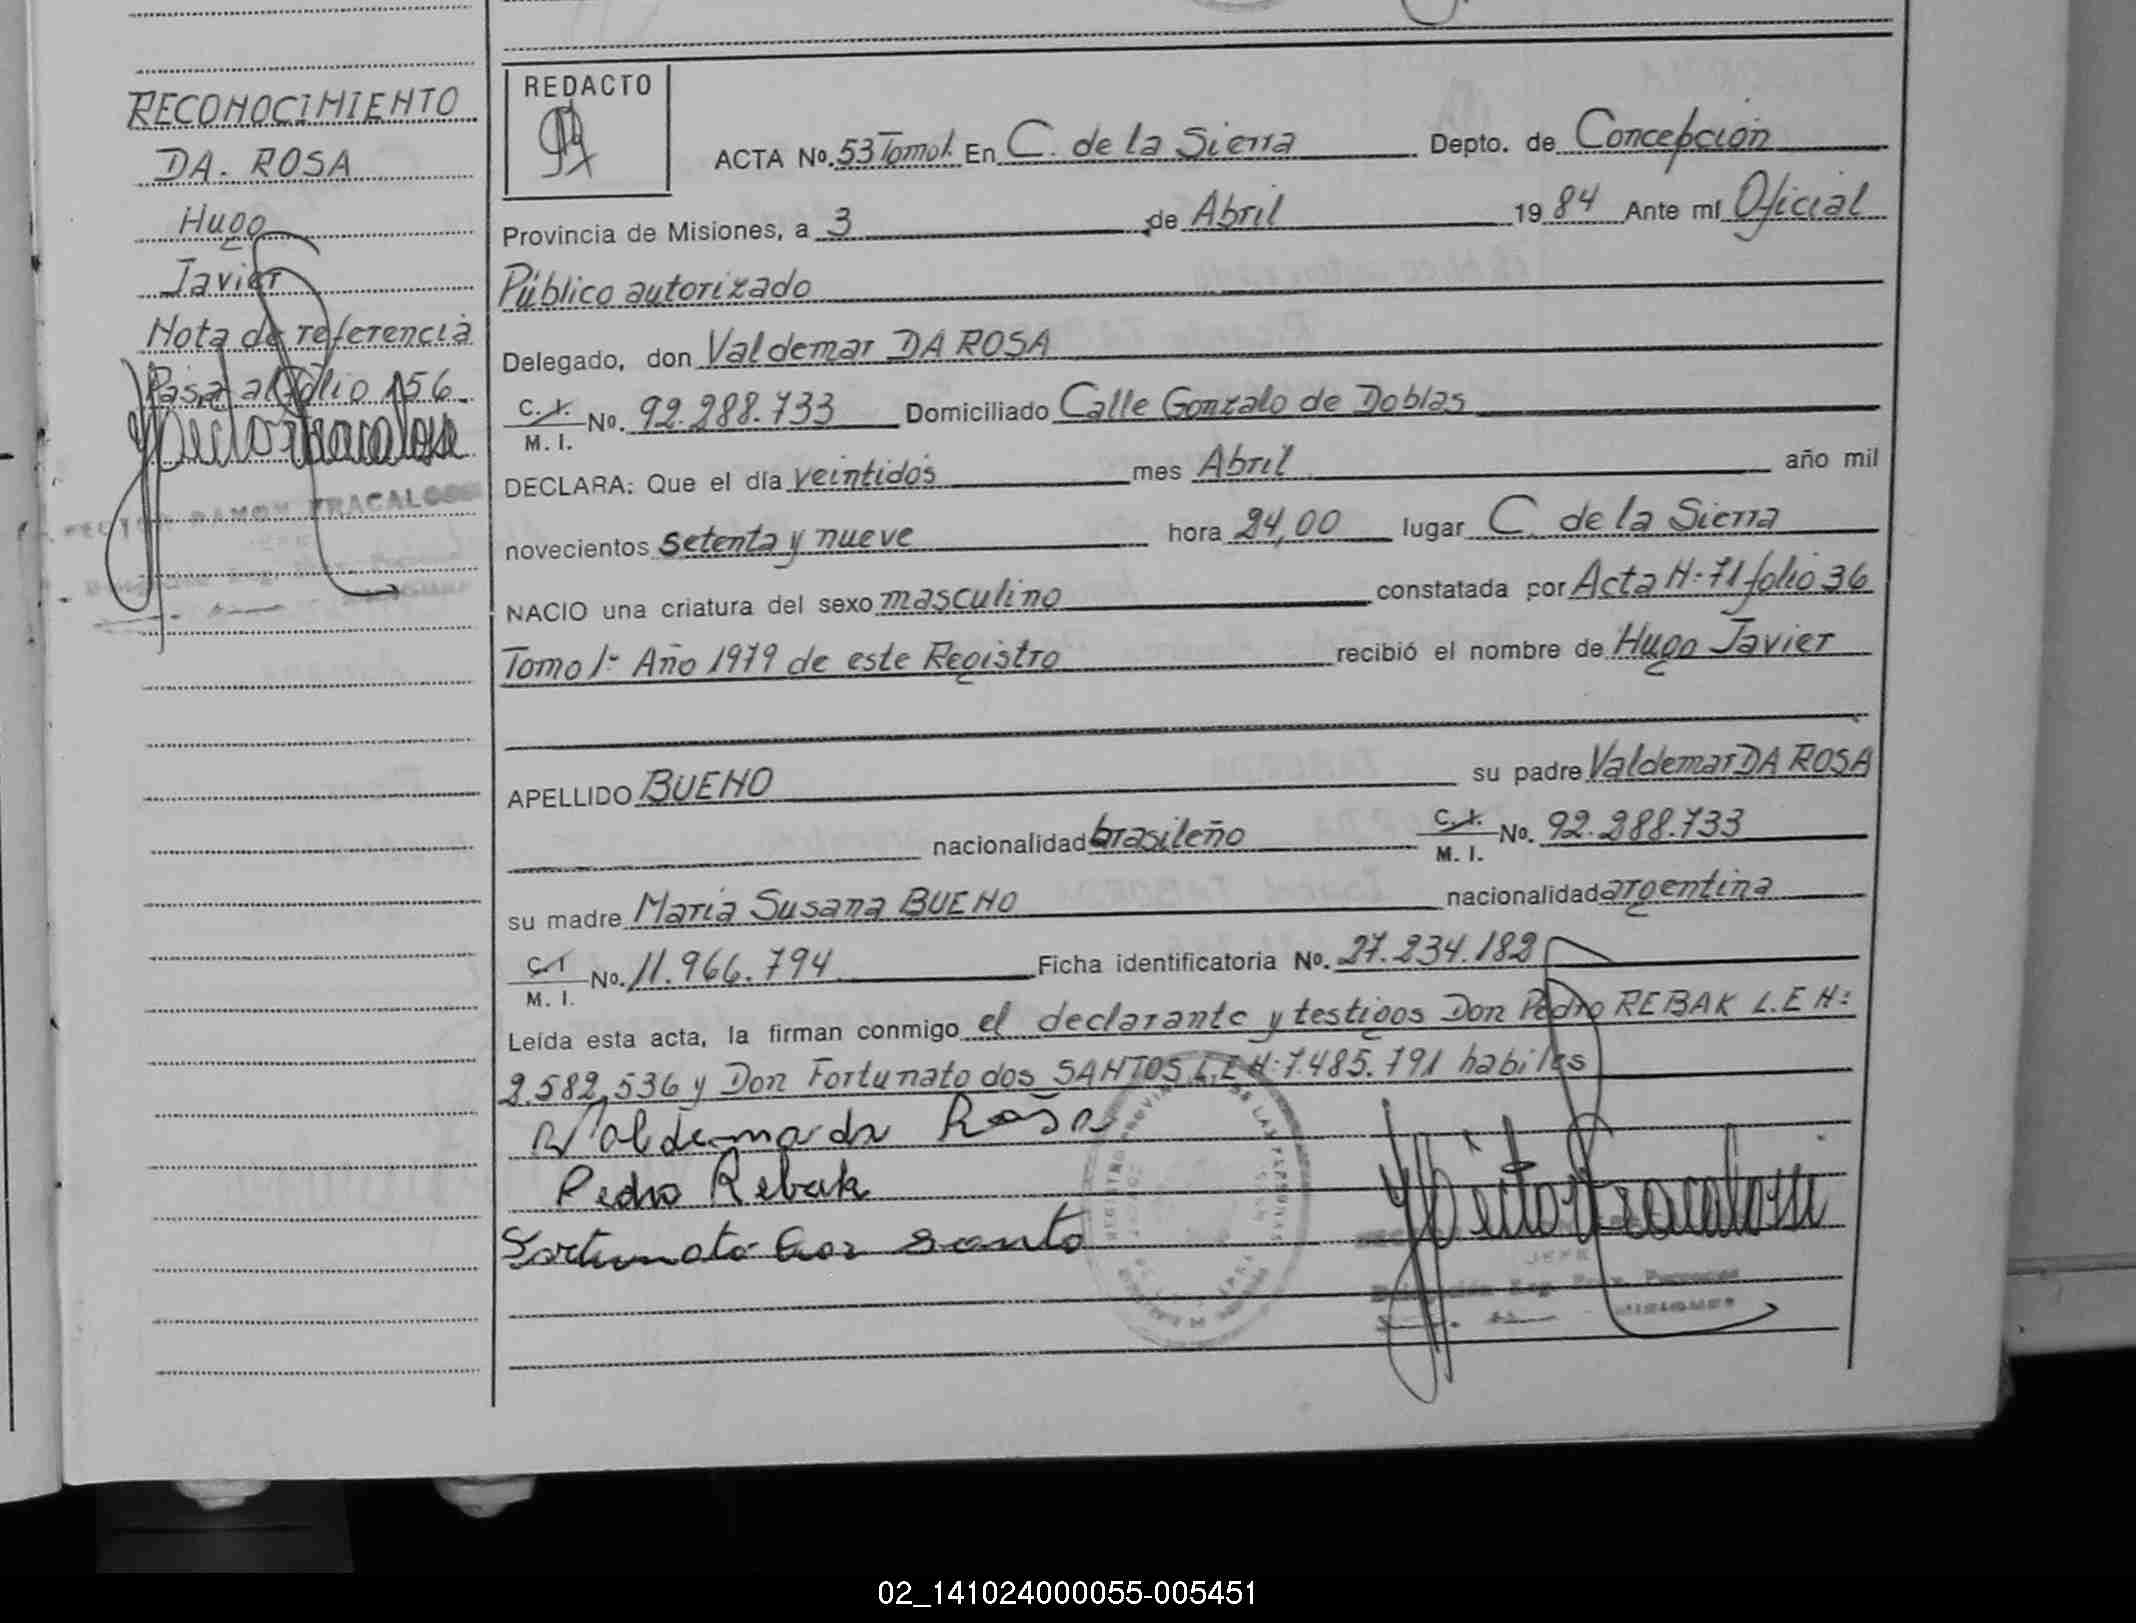 RECONOCIMIENTO
DA. ROSA
Hugo
Javier
Nota de referencia
Pasa al folio 156.
HECTOR RAMON FRACALOSSI
REDACTO
ACTA No. 53 Tomo 1. En C. de la Sierra Depto. de Concepción
Provincia de Misiones, a 3 de Abril 1984 Ante mí Oficial
Público autorizado
Delegado, don Valdemar DA ROSA
C. I.
M. I. No. 92.288.733 Domiciliado Calle Gonzalo de Doblas
DECLARA: Que el día veintidós mes Abril año mil
novecientos setenta y nueve hora 24,00 lugar C. de la Sierra
NACIO una criatura del sexo masculino constatada por Acta N: 71 folio 36
Tomo 1: Año 1979 de este Registro recibió el nombre de Hugo Javier
APELLIDO BUENO su padre Valdemar DA ROSA
nacionalidad brasileño C. I. M. I. No. 92.288.733
su madre María Susana BUENO nacionalidad argentina
C. I
M. I. No. 11.966.794 Ficha identificatoria No. 27.234.182
Leída esta acta, la firman conmigo el declarante y testigos Don Pedro REBAK L.E N:
2.582,536 y Don Fortunato dos SANTOS L.E N: 7.485.791 habiles
Valdemar da Rosa
Pedro Rebak
Fortunato dos santo
JEFE
02_141024000055-005451